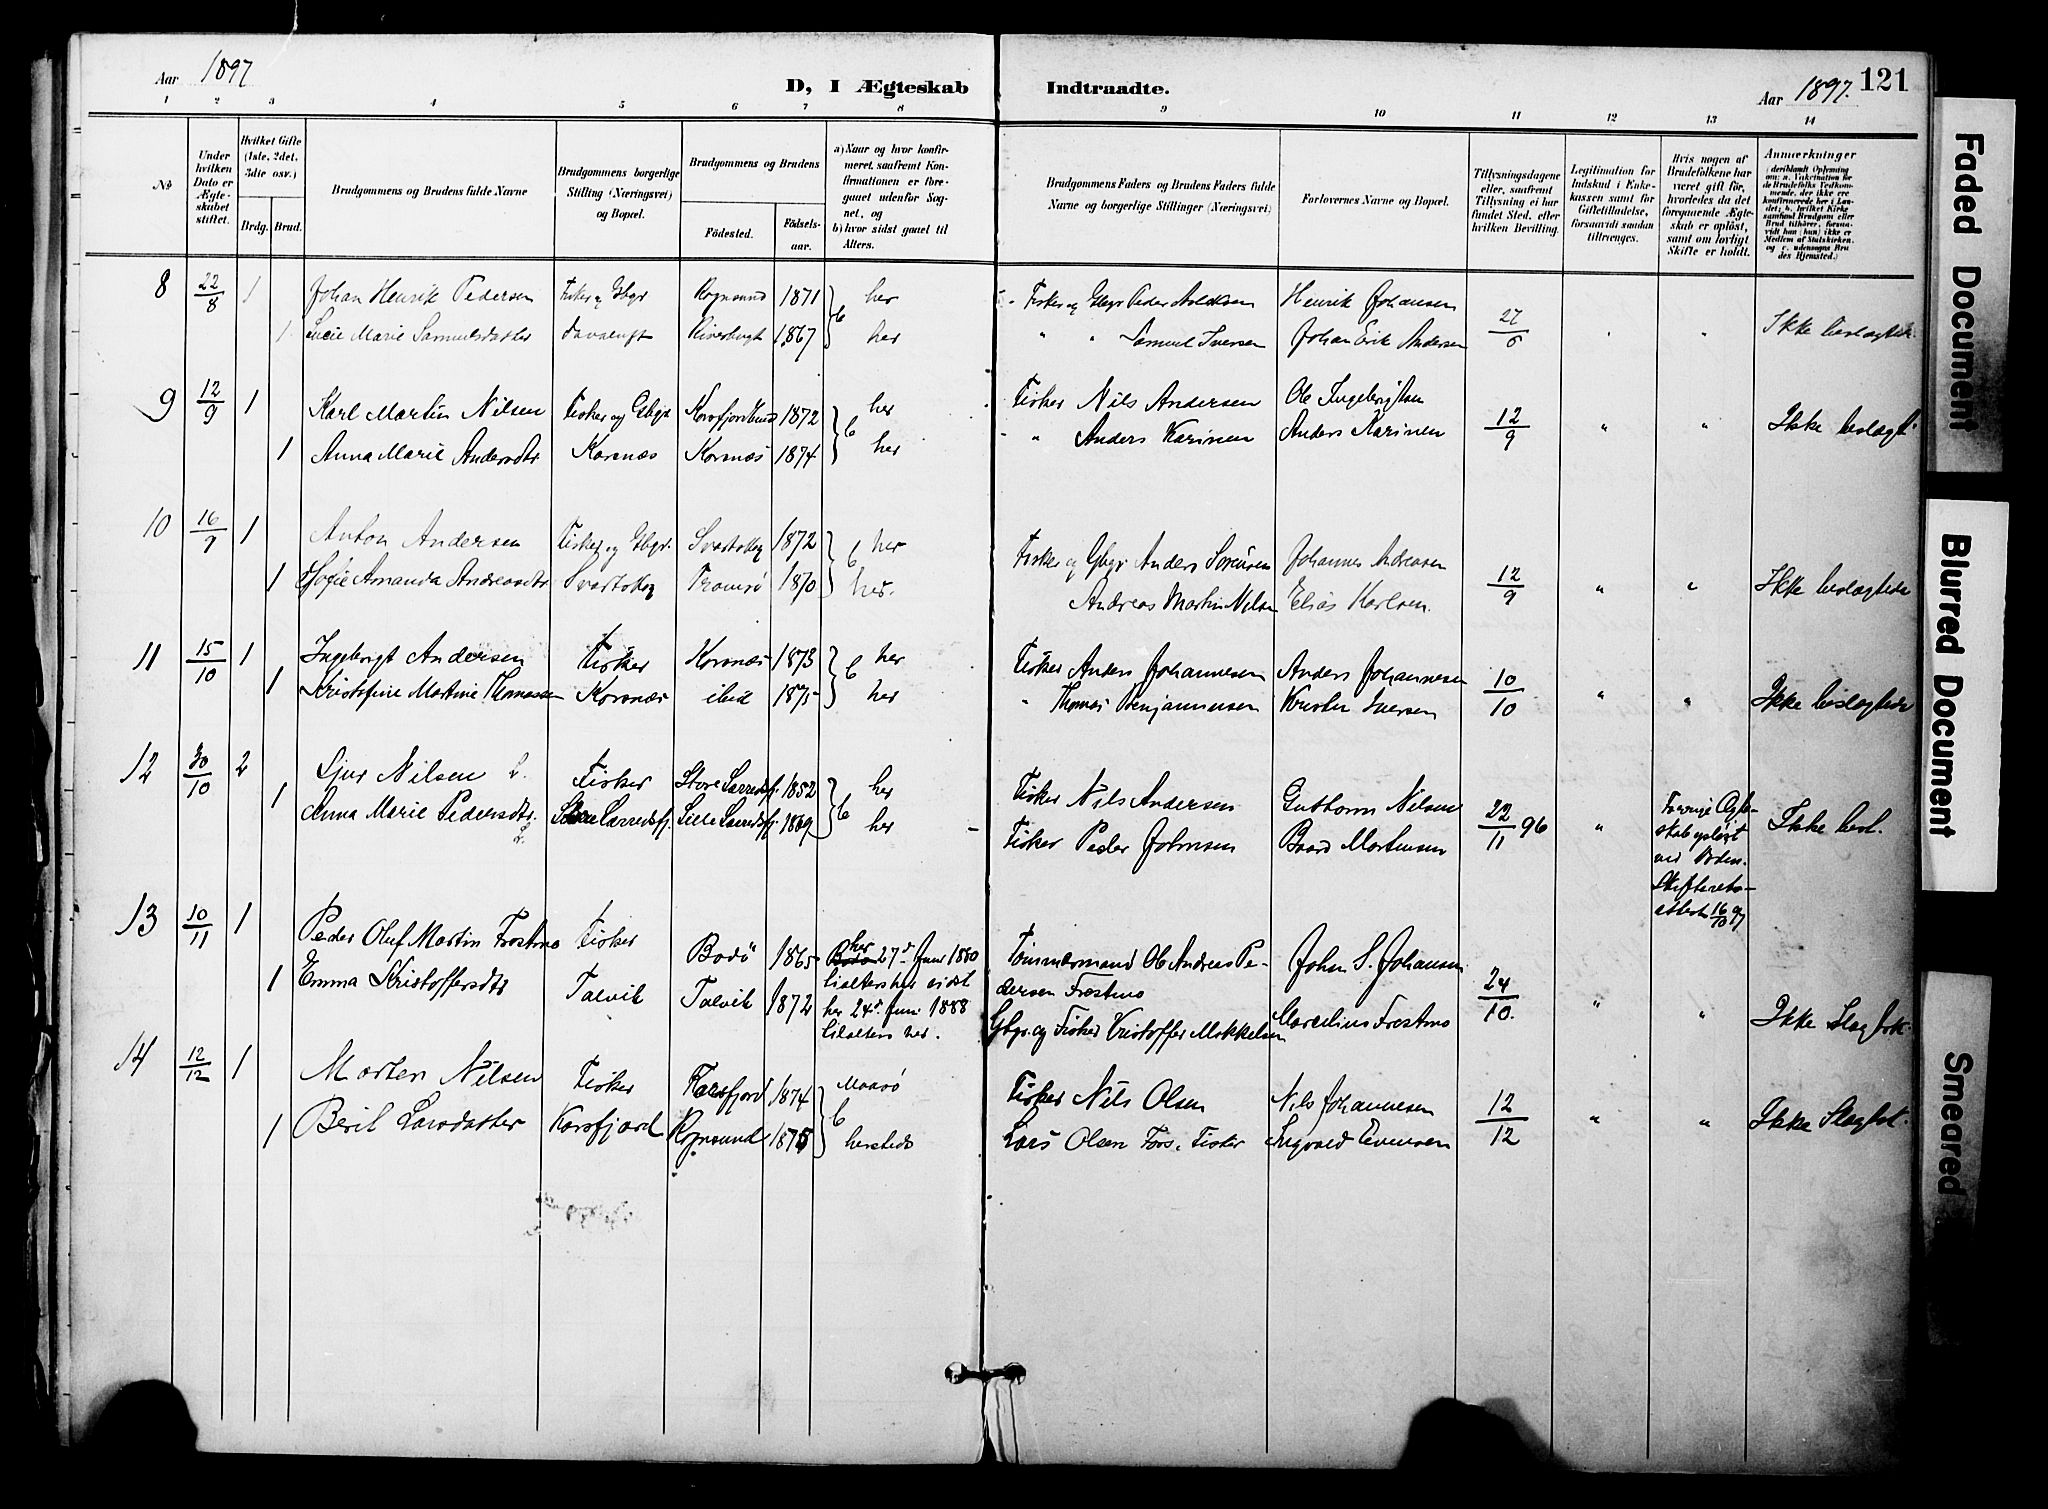 Aar 1897
D, I Ægteskab Indtraadte.
Aar 1897. 121
1 2 3 4 5 6 7 8 9 10 11 12 13 14
No
Under hvilken Dato er Ægteskabet stiftet.
Hvilket Gifte (1ste, 2det, 3die osv.)
Brdg. Brud.
Brudgommens og Brudens fulde Navne
Brudgommens borgerlige Stilling (Næringsvei) og Bopæl.
Brudgommens og Brudens
Födested. Födselsaar.
a) Naar og hvor konfirmeret, saafremt Konfirmationen er foregaaet udenfor Sognet, og
b) hvor sidst gaaet til Alters.
Brudgommens Faders og Brudens Faders fulde Navne og borgerlige Stillinger (Næringsvei)
Forlovernes Navne og Bopæl.
Tillysningsdagene eller, saafremt Tillysning ei har fundet Sted, efter hvilken Bevilling.
Legitimation for Indskud i Enkekassen samt for Giftetilladelse, forsaavidt saadan tiltrænges.
Hvis nogen af Brudefolkene har været gift för, hvorledes da det foregaaende Ægteskab er oplöst, samt om lovligt Skifte er holdt.
Anmærkninger
8 22/8 1 Johan Henrik Pedersen Fisker og Gbgr Rognsund 1871 b her Fisker og Gbgr Peder Henrik Johansen 27/6 " " Ikke beslægtede.
1 Lucie Marie Samuelsdatter 1867 her " " Samuel Iversen Johan Erik Andersen
9 12/9 1 Karl Martin Nilsen Fisker og Gbgr Korsfjordbund 1872 b her Fisker Nils Andersen Ole Ingebrigtsen 12/9 " " Ikke beslægt.
1 Anna Marie Andersdtr Korsnæs Korsnæs 1874 her " Anders Karinen Anders Karinen
10 16/9 1 Anton Andersen Fisker og Gbgr. 1872 b her Fisker og Gbgr Anders Sørensen Johannes Andreasen 12/9 " " Ikke beslægtede
1 Sofie Amanda Andreasdtr Tromsö 1870 her. Andreas Martin Nilsen Elias Karlsen.
11 15/10 1 Ingebrigt Andersen Fisker Korsnæs 1873 b her Fisker Anders Johannesen Anders Johannesen 10/10 " " Ikke beslægtede
1 Kristofine Martine Thomassen Korsnæs ibid 1875 her " Thomas Benjaminsen Iversen
12 30/10 2 Sjur Nilsen L. Fisker Store Lærredsfj. 1852 b her Fisker Nils Andersen Guttorm Nilsen 22/11 96 " Ikke besl.
1 Anna Marie Pedersdtr. L. Store Lærredsfj. Lille Lærredsfj. 1869 her Fisker Peder Johnsen Baard Mortensen
Forrige Ægteskab opløst ved Döden. Skifteretsattest 16/10 97
13 10/11 1 Peder Oluf Martin Frostmo Fisker Bodö 1865 her 27d Juni 1880 Tømmermand Ole Andreas Pedersen Frostmo John S. Johansen 24/10. " " Ikke Slægtsk.
1 Emma Kristoffersdtr Talvik Talvik 1872 her 24d Juni 1888 tilalters her. Gbgr. og Fisker Kristoffer Mikkelsen Marcelius Frostmo
14 12/12 1 Morten Nilsen Fisker Korsfjord 1874 b Maasö Fisker Nils Olsen Nils Johannesen 12/12 " " Ikke Slægtsk.
1 Berit Larsdatter Korsfjord Rognsund 1875 hersteds Lars Olsen Fors. Fisker Ingvald Evensen
Faded Document
Blurred Document
Smeared